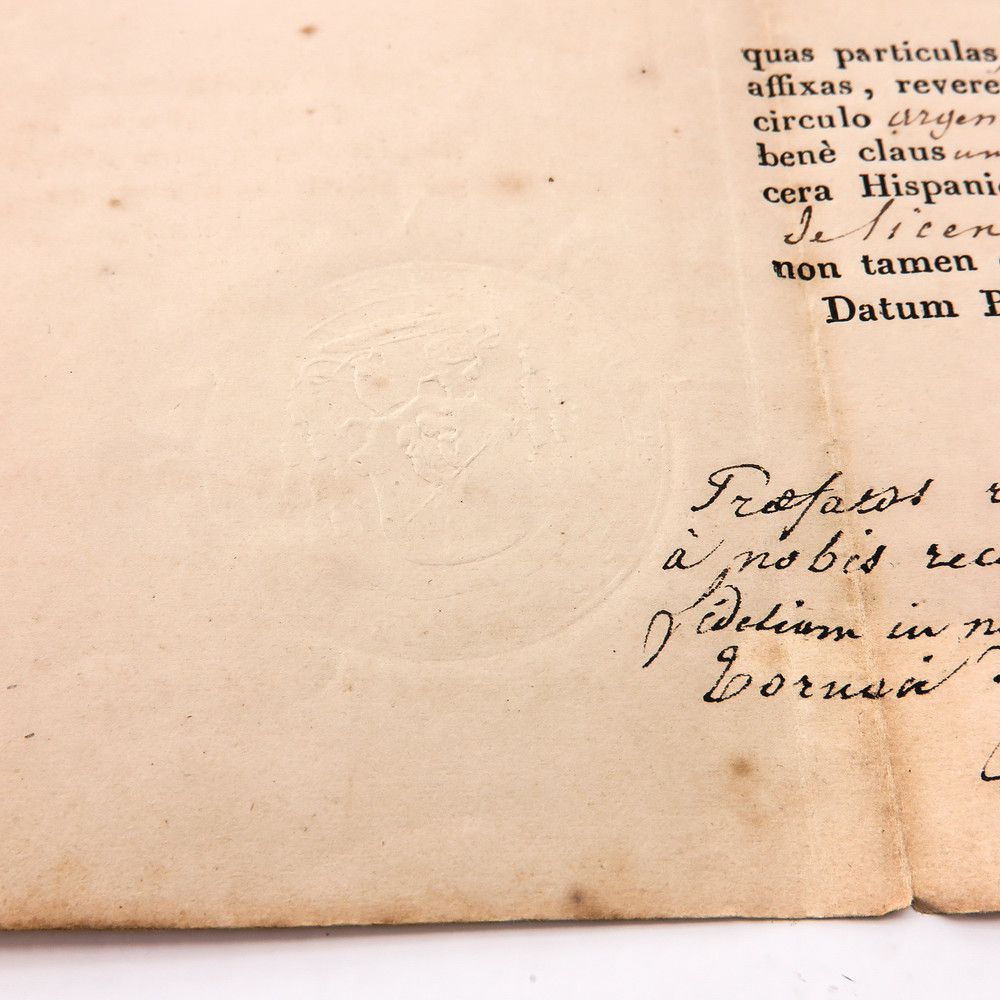 quas particulas
affixas, revere
circulo argen
benè clausum
cera Hispani
de licen
non tamen
Datum
à nobis rec
fidelium in n